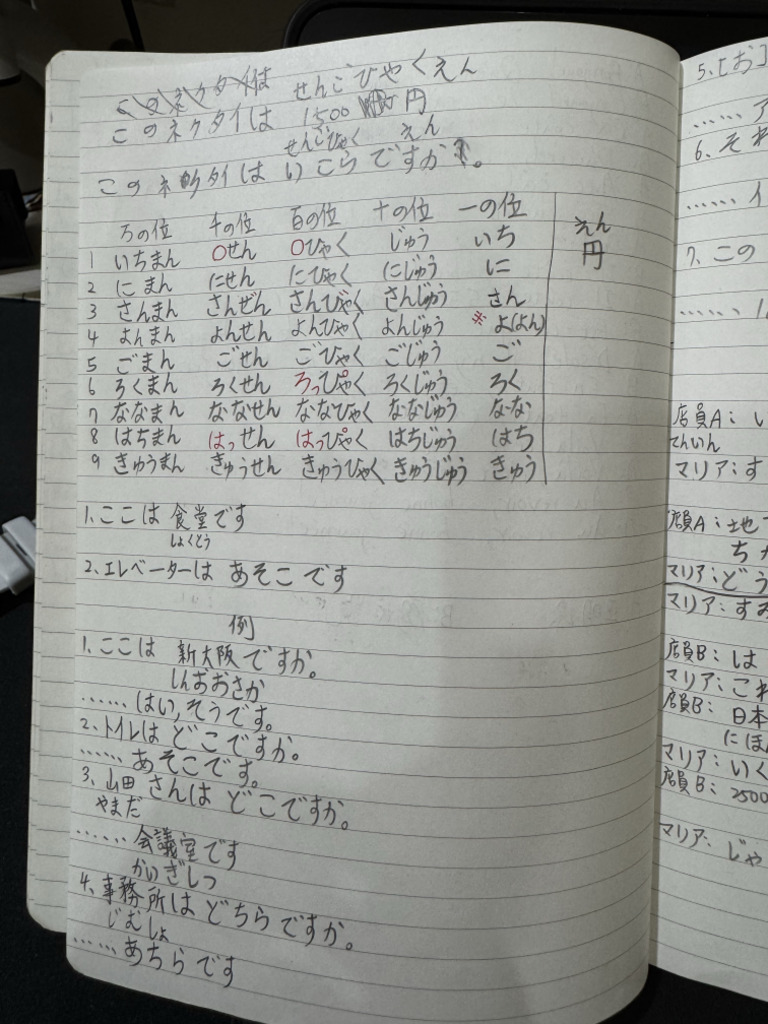 このネクタイは せんごひゃくえん
このネクタイは 1500 円
せんごひゃく えん
このネクタイは いこらですか。
万の位 千の位 百の位 十の位 一の位
えん
円
1 いちまん ○せん ○ひゃく じゅう いち
2 にまん にせん にひゃく にじゅう に
3 さんまん さんぜん さんびゃく さんじゅう さん
4 よんまん よんせん よんひゃく よんじゅう ※よ(よん)
5 ごまん ごせん ごひゃく ごじゅう ご
6 ろくまん ろくせん ろっぴゃく ろくじゅう ろく
7 ななまん ななせん ななひゃく ななじゅう なな
8 はちまん はっせん はっぴゃく はちじゅう はち
9 きゅうまん きゅうせん きゅうひゃく きゅうじゅう きゅう
1.ここは 食堂です
しょくどう
2.エレベーターは あそこです
例
1.ここは 新大阪ですか。
しんおおさか
......はい,そうです。
2.トイレは どこですか。
......あそこです。
3.山田さんは どこですか。
やまだ
......会議室です
かいぎしつ
4.事務所は どちらですか。
じむしょ
......あちらです
5.[お]
......ア
6.それ
......イ
7.この
......
店員A:い
てんいん
マリア:す
店員A:地
ちか
マリア:どう
マリア:すみ
店員B:は
マリア:これ
店員B:日本
にほん
マリア:いく
店員B:2500
マリア:じゃ